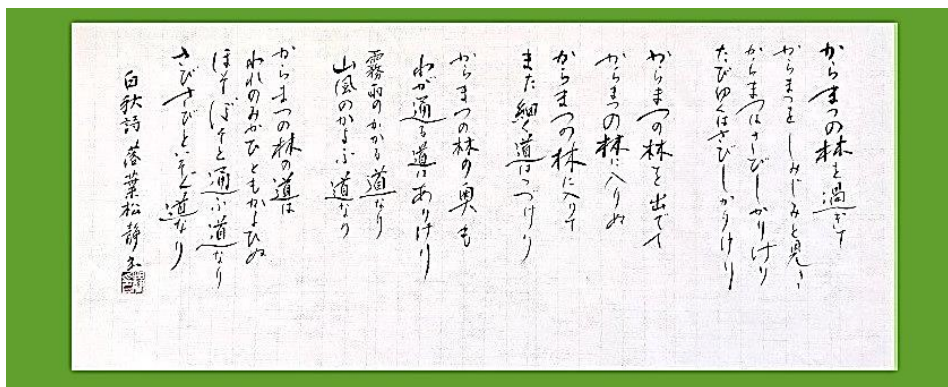 からまつの林を過ぎて
からまつをしみじみと見き
からまつはさびしかりけり
たびゆくはさびしかりけり
からまつの林を出でて
からまつの林に入りぬ
からまつの林に入りて
また細く道はつづけり
からまつの林の奥も
わが通る道はありけり
霧雨のかかる道なり
山風のかよふ道なり
からまつの林の道は
われのみかひともかよひぬ
ほそぼそと通ふ道なり
さびさびといそぐ道なり
白秋詩 落葉松 静